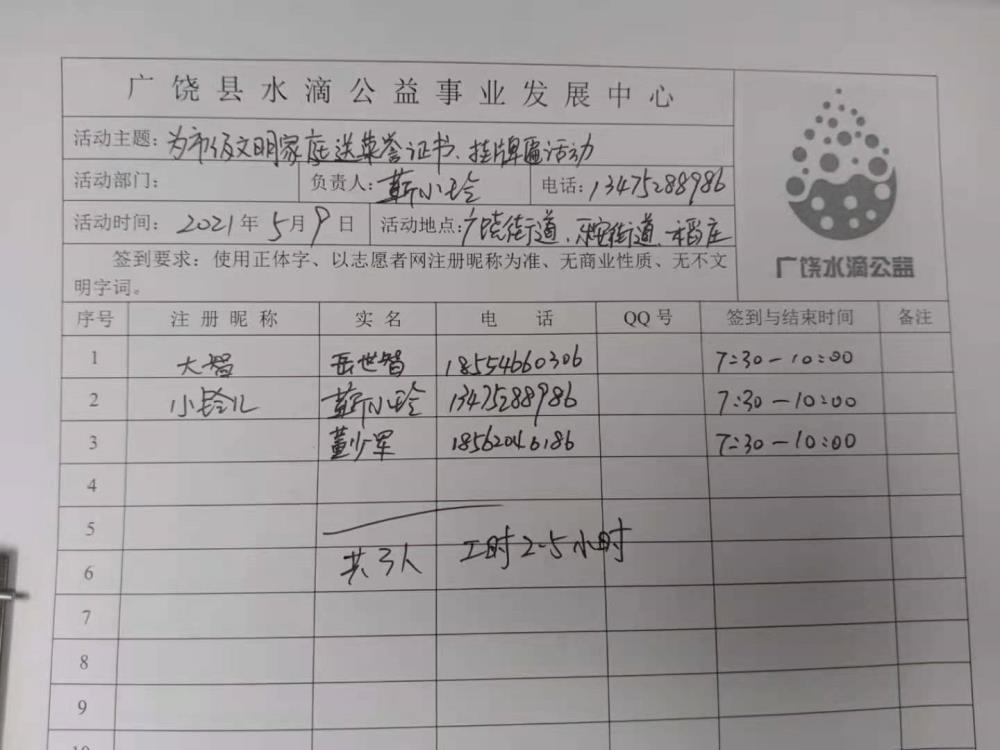 广饶县水滴公益事业发展中心
活动主题：为市级文明家庭送荣誉证书、挂牌匾活动
活动部门： 负责人：靳小玲 电话：13475288986
活动时间： 2021年5月9日 活动地点：广饶街道、乐安街道、稻庄
签到要求：使用正体字、以志愿者网注册昵称为准、无商业性质、无不文
明字词。
广饶水滴公益
序号 注册昵称 实名 电话 QQ号 签到与结束时间 备注
1 大智 岳世智 18554660306 7:30-10:00
2 小铃儿 靳小玲 13475288986 7:30-10:00
3 董少军 18562046186 7:30-10:00
4
5
6 共3人 工时2.5小时
7
8
9
10